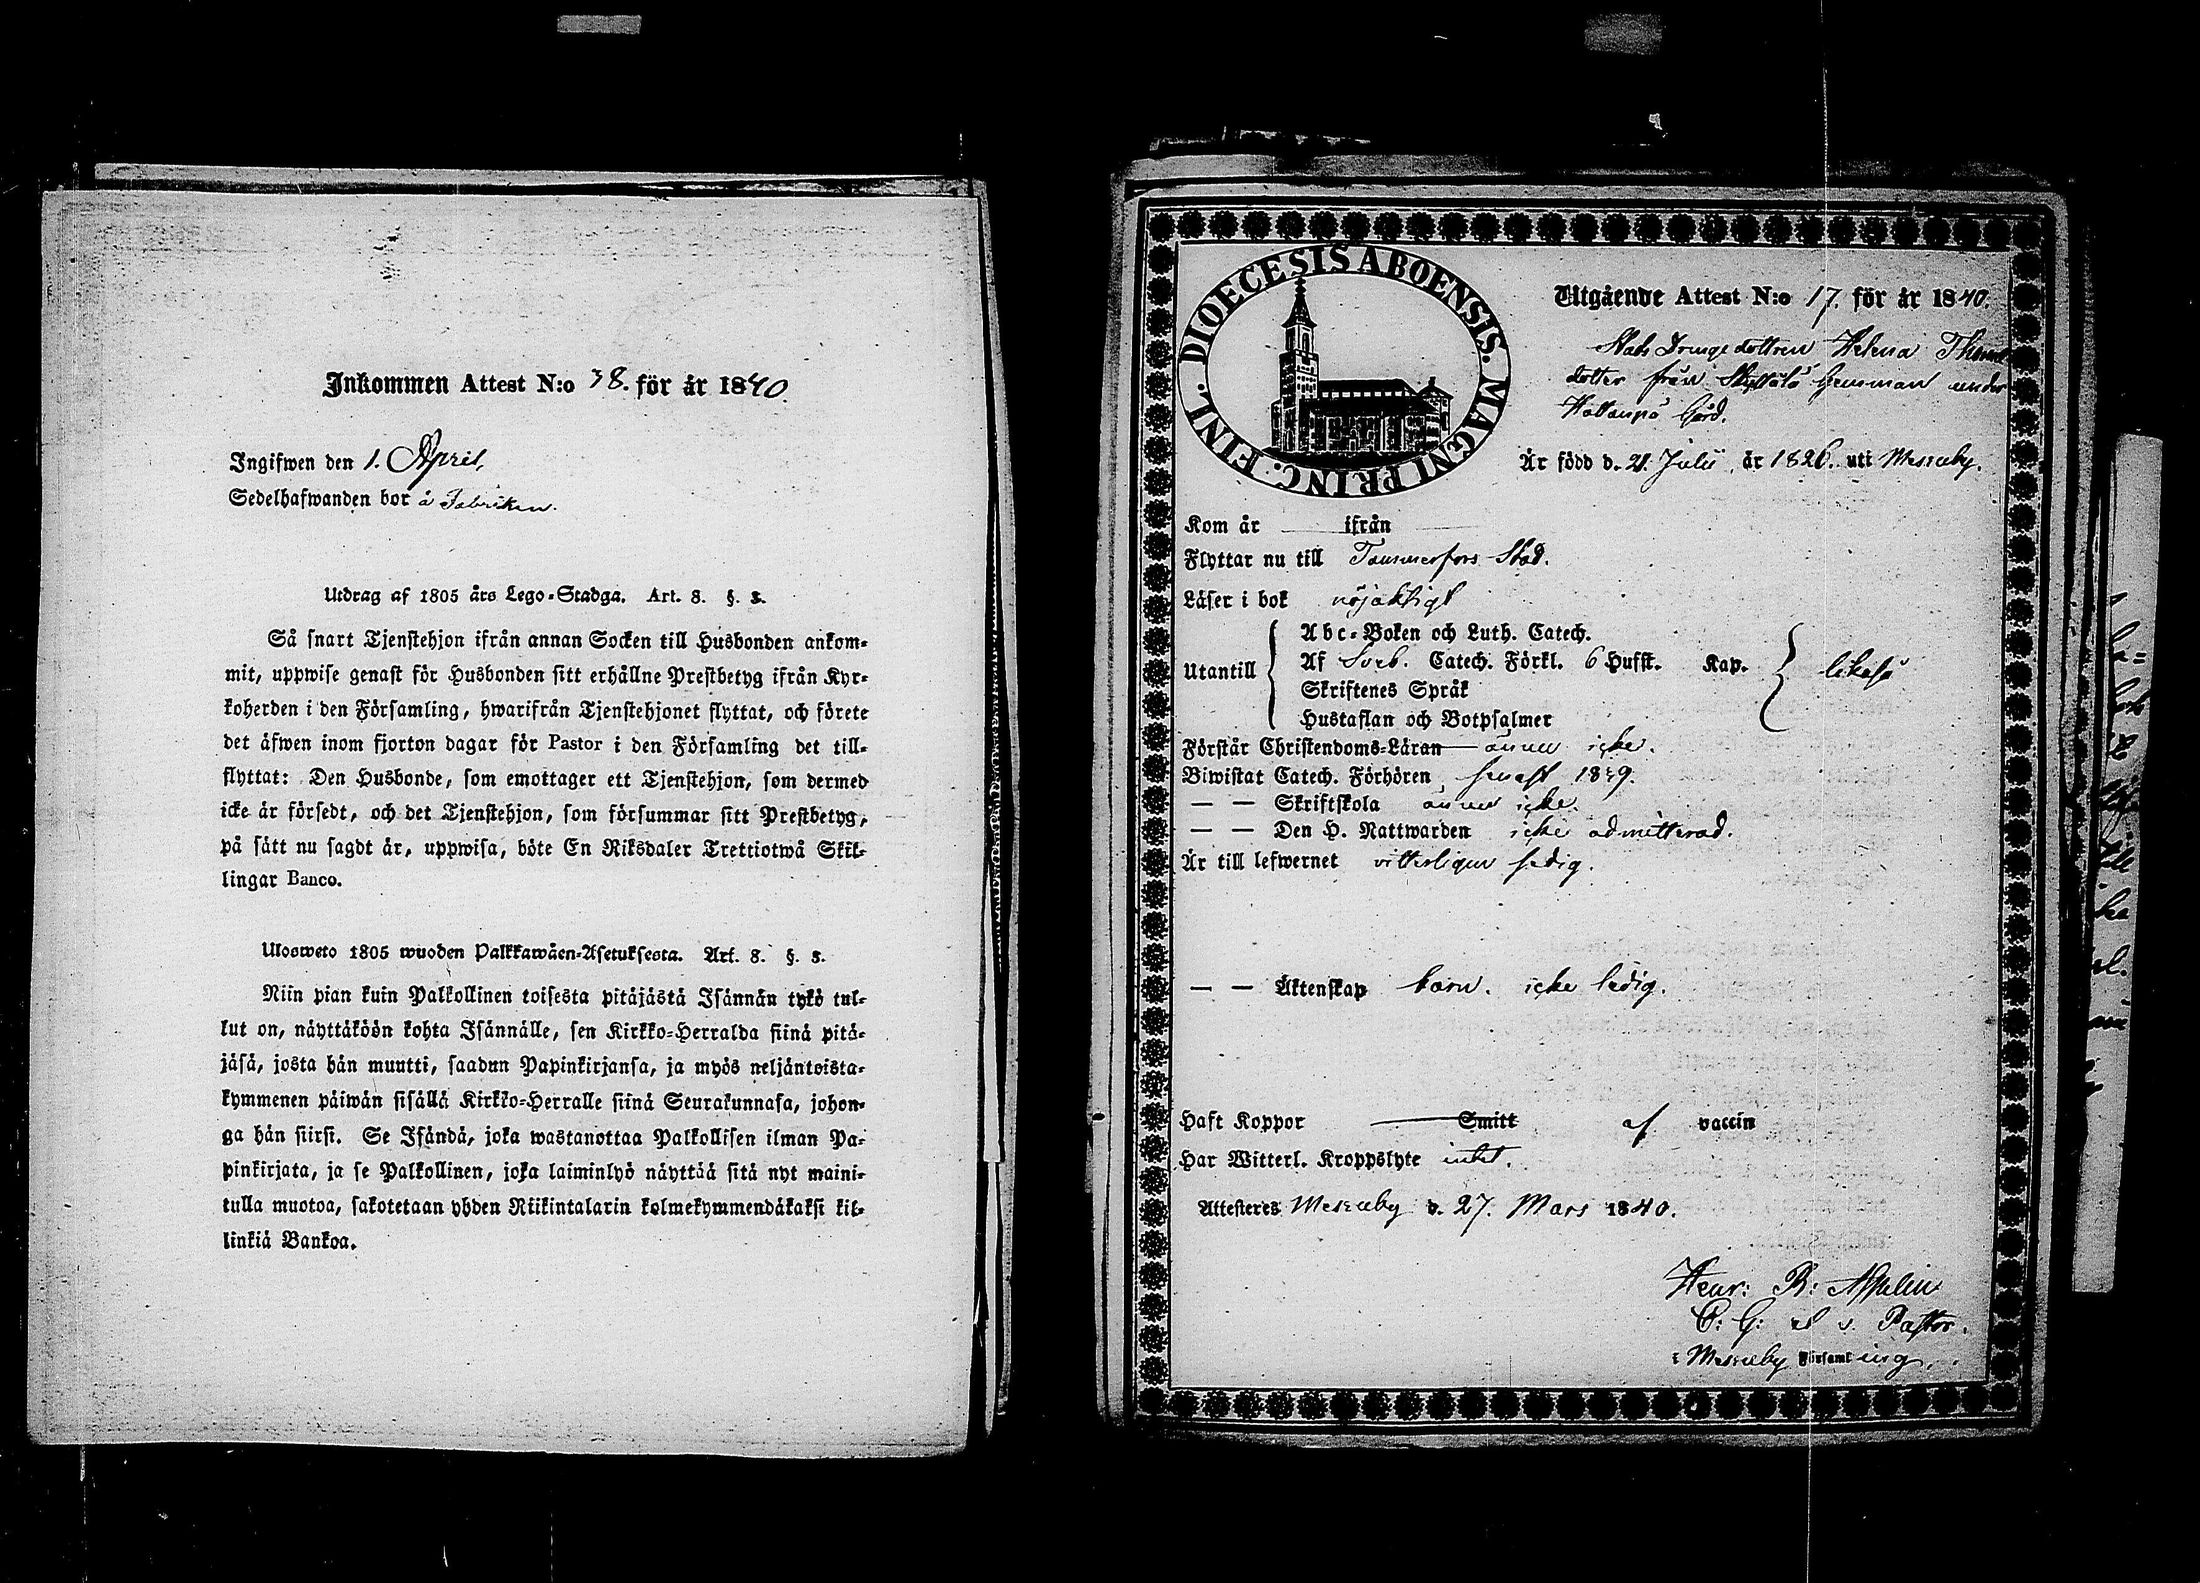 Inkommen Attest N:o 38. för år 1840.
Ingifwen den 1. April,
Sedelhafwanden bor å Fabriken.
Utdrag af 1805 års Lego-Stadga. Art. 8. §. 3.
Så snart Tjenstehjon ifrån annan Socken till Husbonden ankom-
mit, uppwise genast för Husbonden sitt erhållne Prestbetyg ifrån Kyr-
koherden i den Församling, hwarifrån Tjenstehjonet flyttat, och förete
det äfwen inom fjorton dagar för Pastor i den Församling det till-
flyttat: Den Husbonde, som emottager ett Tjenstehjon, som dermed
icke är försedt, och det Tjenstehjon, som försummar sitt Prestbetyg,
på sätt nu sagdt är, uppwisa, böte En Riksdaler Trettiotwå Skil-
lingar Banco.
Ulosweto 1805 wuoden Palkkawäen-Asetuksesta. Art. 8. §. 3.
Niin pian kuin Palkollinen toisesta pitäjästä Isännän tykö tul-
lut on, näyttäköön kohta Isännälle, sen Kirkko-Herralda siinä pitä-
jäsä, josta hän muutti, saadun Papinkirjansa, ja myös neljäntoista-
kymmenen päiwän sisällä Kirkko-Herralle siinä Seurakunnasa, johon-
ga hän siirsi. Se Isändä, joka wastanottaa Palkollisen ilman Pa-
pinkirjata, ja se Palkollinen, joka laiminlyö näyttää sitä nyt maini-
tulla muotoa, sakotetaan yhden Riikintalarin kolmekymmendäkaksi kil-
linkiä Bankoa.
DIOECESIS ABOENSIS. MAGNI PRINC. FINL.
Utgående Attest N:o 17. för år 1840.
Helena
dotter från under
Gård.
Är född d. 21. Julii år 1826. uti Messuby.
Kom år — ifrån —
Flyttar nu till Tammerfors Stad.
Läser i bok nöjaktigt
Utantill
Abc-Boken och Luth. Catech.
Af Sveb. Catech. Förkl. 6 Hufst. Kap.
Skriftenes Språk
Hustaflan och Botpsalmer
likaså
Förstår Christendoms-Läran ännu icke.
Biwistat Catech. Förhören senast 1839.
— — Skriftskola ännu icke.
— — Den H. Nattwarden icke admitterad.
Är till lefwernet vitterligen sedig.
— — Äktenskap barn. icke ledig.
Haft Koppor — Smitt af vaccin
Har Witterl. Kroppslyte intet.
Attesteras Messuby d. 27. Mars 1840.
Henr: R:
Pastor.
i Messuby Församling.